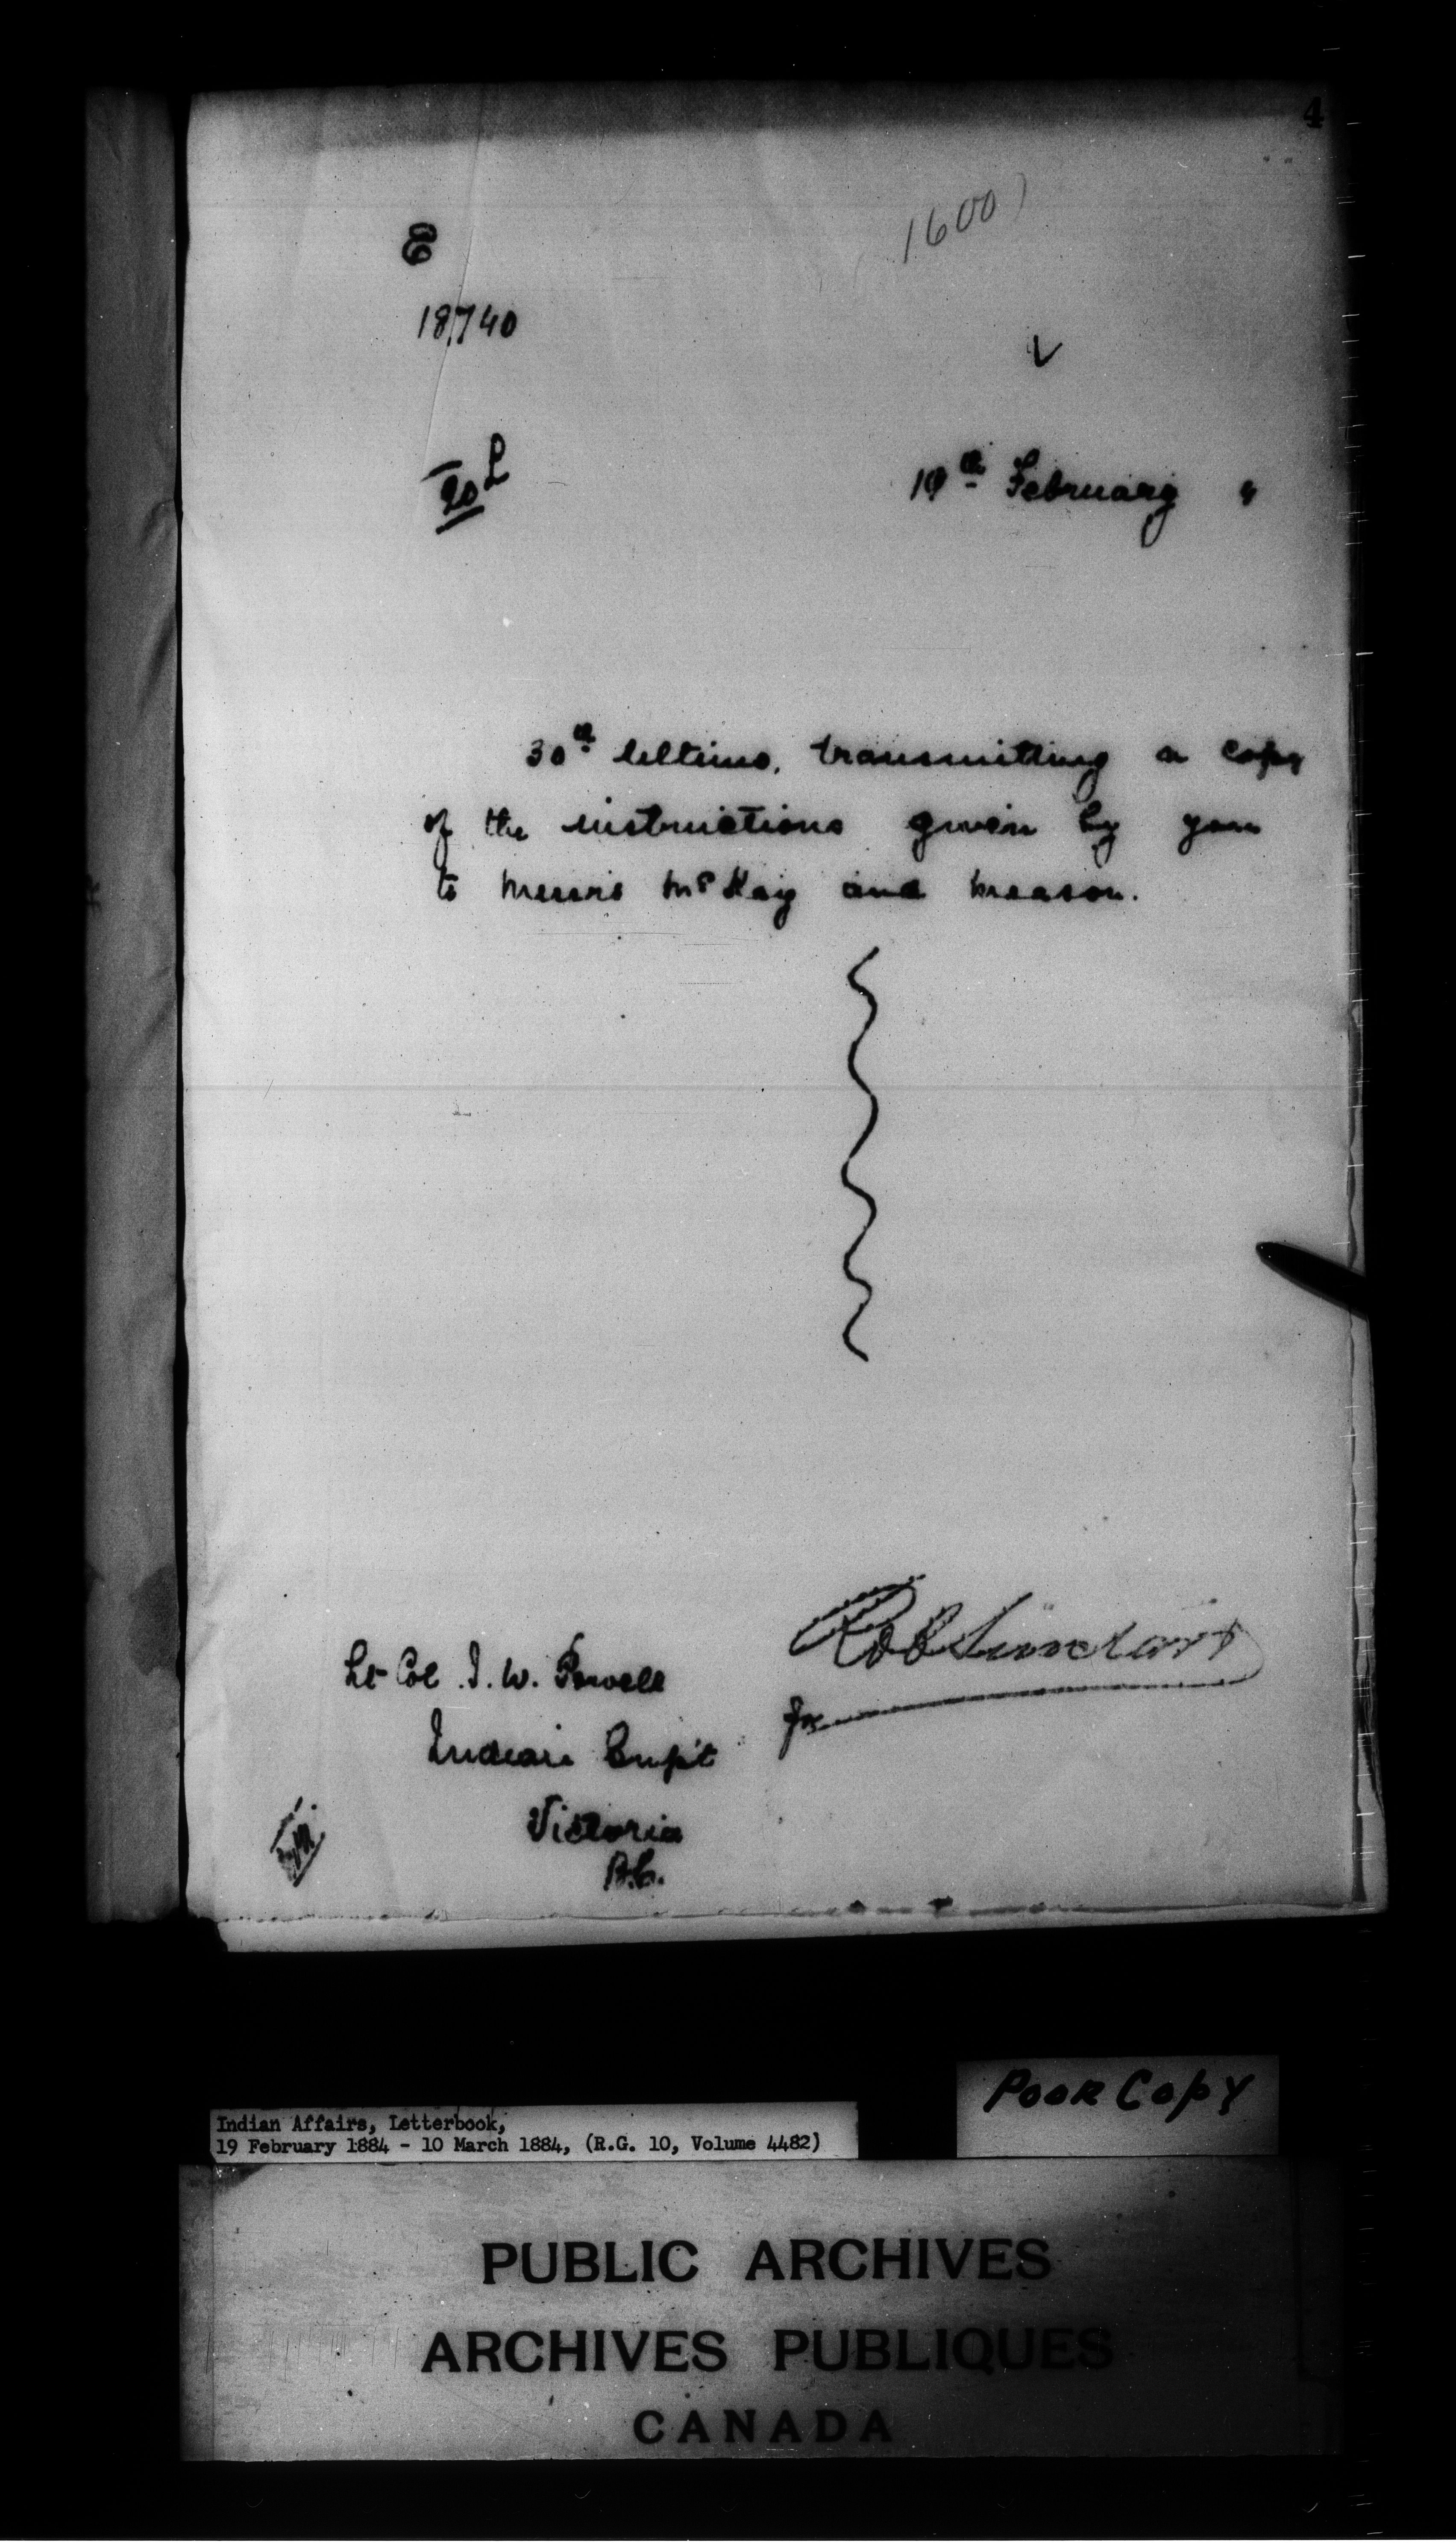 4
1600)
18740
19th February "
30th Ultimo, transmitting a copy
of the instructions given by you
to Messrs McKay and Meason.
Robt Sinclair
for
Lt Col I. W. Powell
Indian Supt
Victoria
B.C.
POOR COPY
Indian Affairs, Letterbook,
19 February 1884 - 10 March 1884, (R.G. 10, Volume 4482)
PUBLIC ARCHIVES
ARCHIVES PUBLIQUES
CANADA